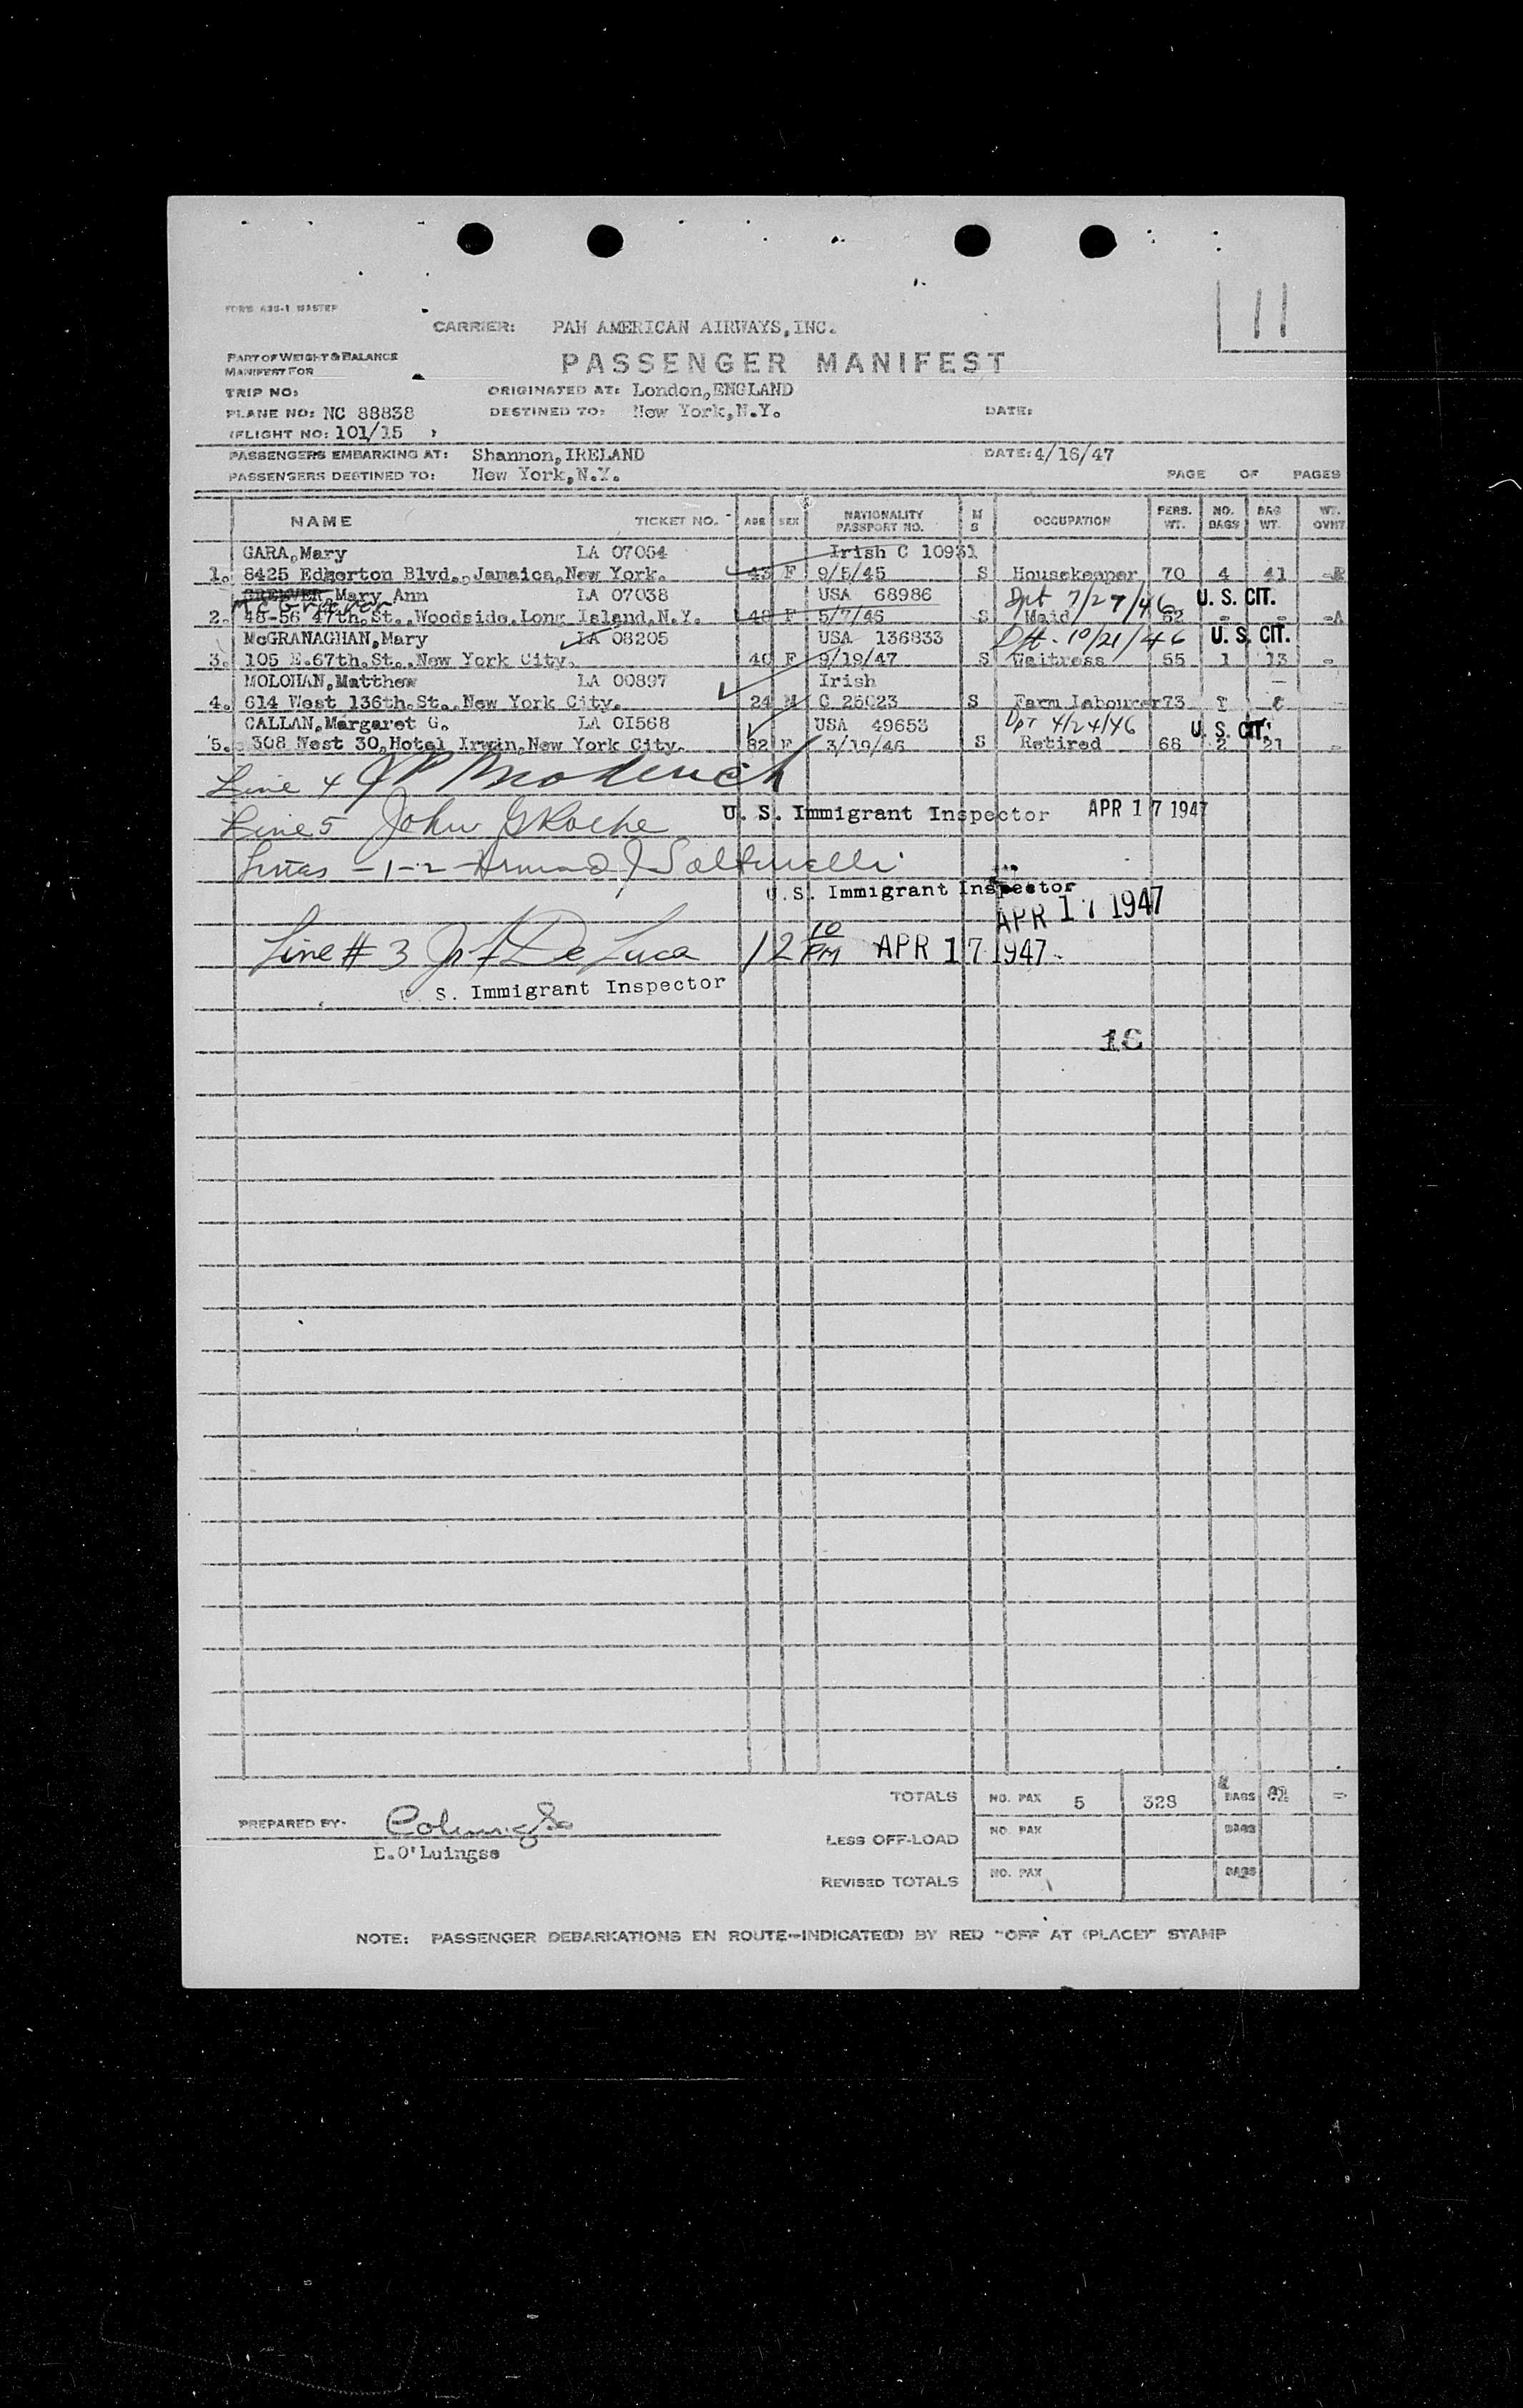 FORM 633-1 MASTER
11
CARRIER: PAN AMERICAN AIRWAYS,INC.
PART OF WEIGHT & BALANCE
MANIFEST FOR
PASSENGER MANIFEST
TRIP NO: ORIGINATED AT: London,ENGLAND
PLANE NO: NC 88838 DESTINED TO: New York,N.Y. DATE:
(FLIGHT NO: 101/15 )
PASSENGERS EMBARKING AT: Shannon,IRELAND DATE:4/16/47
PASSENGERS DESTINED TO: New York,N.Y. PAGE OF PAGES
NAME TICKET NO. AGE SEX NATIONALITY PASSPORT NO. M S OCCUPATION PERS. WT. NO. BAGS BAG WT. WT. OVHT
GARA,Mary LA 07054 Irish C 10931
1. 8425 Edgerton Blvd.,Jamaica,New York. 43 F 9/5/45 S Housekeeper 70 4 41
Mary Ann LA 07038 USA 68986 Dpt 7/27/46 U. S. CIT.
2. 48-56 47th.St.,Woodside.Long Island,N.Y. 48 F 5/7/46 S Maid 62 - -
McGRANAGHAN,Mary LA 08205 USA 136833 Dpt. 10/21/46 U. S. CIT.
3. 105 E.67th.St.,New York City. 40 F 9/19/47 S Waitress 55 1 13 -
MOLOHAN,Matthew LA 00897 Irish
4. 614 West 136th.St.,New York City. 24 M C 25023 S Farm Labourer 73
CALLAN,Margaret G. LA 01568 USA 49653 Dpt 4/24/46 U. S. CIT.
5. 308 West 30,Hotel Irwin,New York City. 82 F 3/19/46 S Retired 68 2 21 -
Line 4 J P Broderick
Line 5 John G Roche U. S. Immigrant Inspector APR 17 1947
Lines -1-2- Armand J Saltinelli
U.S. Immigrant Inspector APR 17 1947
Line # 3 Jos F De Luca 12 10 PM APR 17 1947
U. S. Immigrant Inspector
TOTALS NO. PAX 5 328 BAGS -
PREPARED BY-
LESS OFF-LOAD NO. PAX BAGS
REVISED TOTALS NO. PAX BAGS
NOTE: PASSENGER DEBARKATIONS EN ROUTE-INDICATE(D) BY RED "OFF AT (PLACE)" STAMP